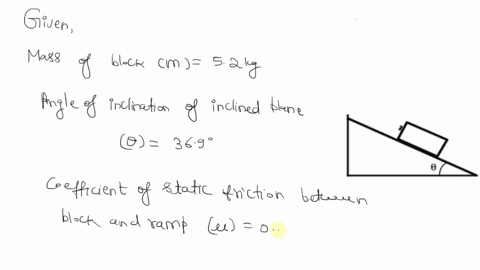 Given,
Mass of block (m) = 5.2 kg
Angle of inclination of inclined plane
(θ) = 36.9°
θ
Coefficient of static friction between
block and ramp (μ) = 0..